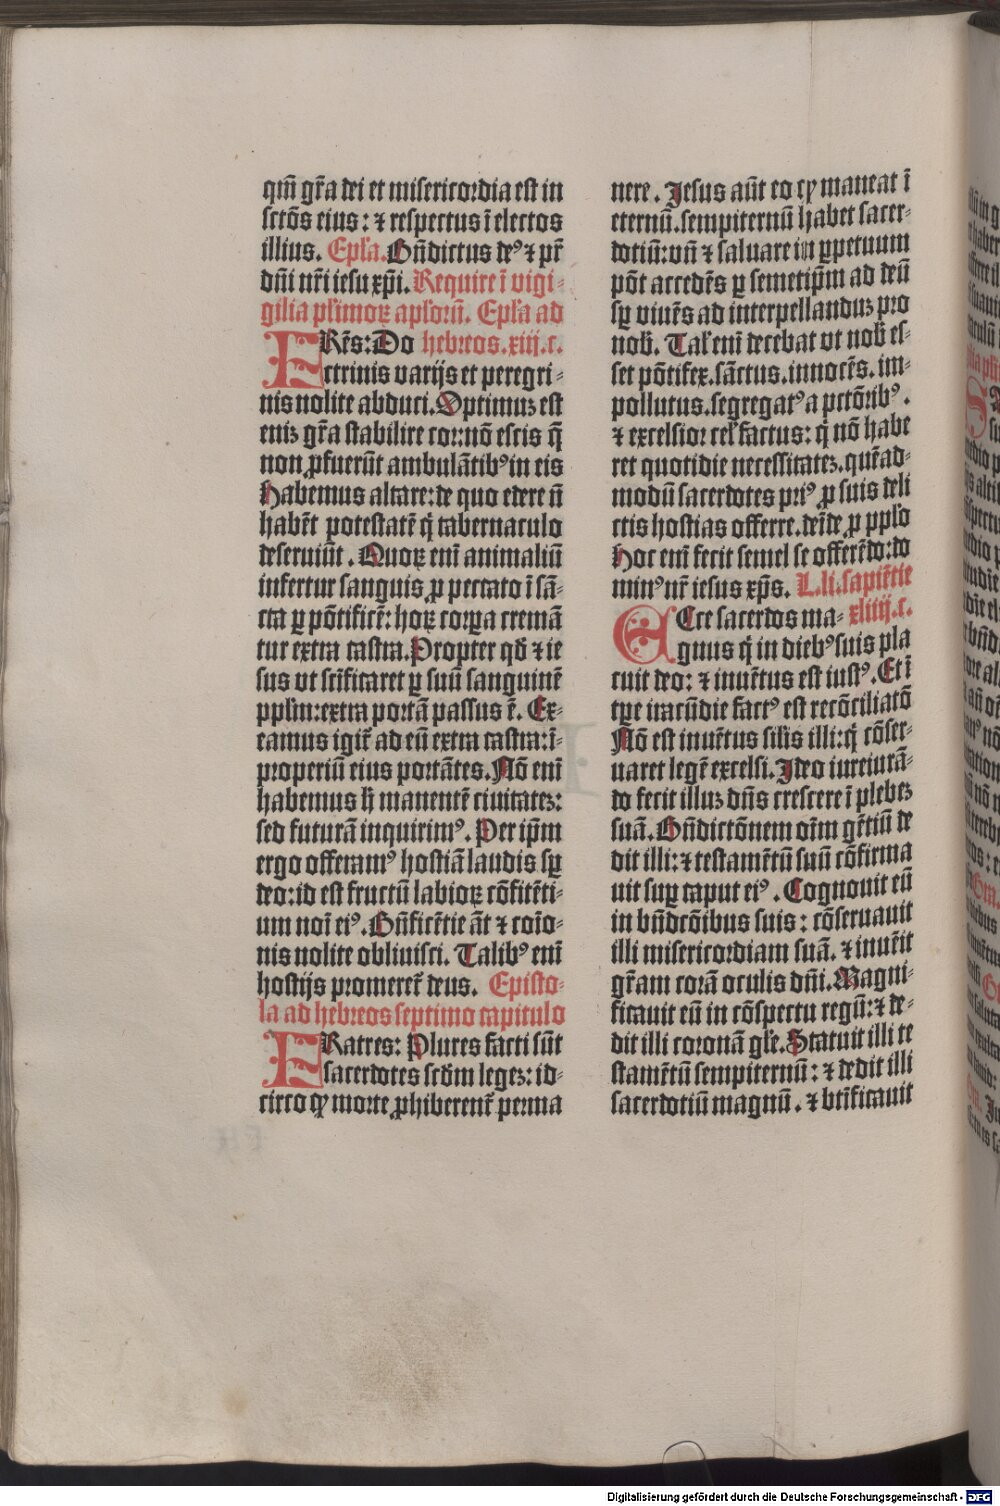 qm̄ gr̄a dei et misericordia est in
sctōs eius: ⁊ respectus ī electos
illius. Epl̄a. Bn̄dictus deꝰ ⁊ pr̄
dn̄i nr̄i iesu xp̄i. Require ī vigi-
gilia pl̄imoꝝ apl̄oꝝ. Epl̄a ad
FRēs: Do hebreos. xiij. c.
ctrinis varijs et peregri-
nis nolite abduci. Optimuꝫ est
eniꝫ gr̄a stabilire cor: nō escis q̄
non ꝓfuerūt ambulātibꝰ in eis
Habemus altare: de quo edere n̄
habēt potestatē q̇ tabernaculo
deseruiūt. Quoꝝ enī animaliū
infertur sanguis ꝓ peccato ī sā-
cta ꝑ pōtificē: hoꝝ corꝑa cremā
tur extra castra. Propter qd̄ ⁊ ie
sus vt scīficaret ꝑ suū sanguinē
pplm̄: extra portā passus ē. Ex-
eamus igit̄ ad eū extra castra: ī-
properiū eius portātes. Nō enī
habemus h̄ manentē ciuitateꝫ:
sed futurā inquirimꝰ. Per ip̄m
ergo offeramꝰ hostiā laudis sꝑ
deo: id est fructū labioꝝ cōfitēti-
um noī eiꝰ. Bn̄ficētie āt ⁊ coīo-
nis nolite obliuisci. Talibꝰ enī
hostijs promeret̄ deus. Episto-
la ad hebreos septimo capitulo
FRatres: Plures facti sūt
sacerdotes scd̄m legeꝫ: id-
circo qꝫ morte ꝓhiberent̄ perma
nere. Jesus aūt eo qꝫ maneat ī
eternū. sempiternū habet sacer-
dotiū: vn̄ ⁊ saluare in ꝑpetuum
pōt accedēs ꝑ semetip̄m ad deū
sꝑ viuēs ad interpellanduꝫ pro
nob̄. Tal̄ enī decebat vt nob̄ es-
set pōtifex. sāctus. innocēs. im-
pollutus. segregatꝰ a pctōribꝰ.
⁊ excelsior cel̄ factus: q̇ nō habe
ret quotidie necessitateꝫ. quēad-
modū sacerdotes priꝰ ꝓ suis deli
ctis hostias offerre. deīde ꝓ ppl̄o
Hoc enī fecit semel se offerēdo: do
minꝰ nr̄ iesus xp̄s. L. li. sapiētie
ECce sacerdos ma- xliiij. c.
gnus q̇ in diebꝰ suis pla
cuit deo: ⁊ inuētus est iustꝰ. Et ī
tp̄e iracūdie factꝰ est recōciliatō
Nō est inuētus sil̄is illi: q̇ cōser-
uaret legē excelsi. Ideo iureiurā-
do fecit illuꝫ dn̄s crescere ī plebeꝫ
suā. Bn̄dictōnem oīm gētiū de
dit illi: ⁊ testamētū suū cōfirma
uit suꝑ caput eiꝰ. Cognouit eū
in bn̄dcōibus suis: cōseruauit
illi misericordiam suā. ⁊ inuēit
gr̄am corā oculis dn̄i. Magni-
ficauit eū in cōspectu regū: ⁊ de-
dit illi coronā gl̄e. Statuit illi te
stamētū sempiternū: ⁊ dedit illi
sacerdotiū magnū. ⁊ btīficauit
Digitalisierung gefördert durch die Deutsche Forschungsgemeinschaft - DFG